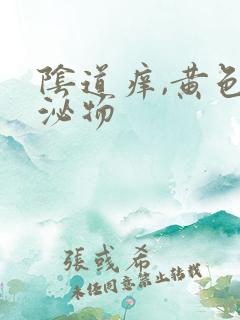 陰道痒,黄色
泌物
張彧希
未经同意禁止转载